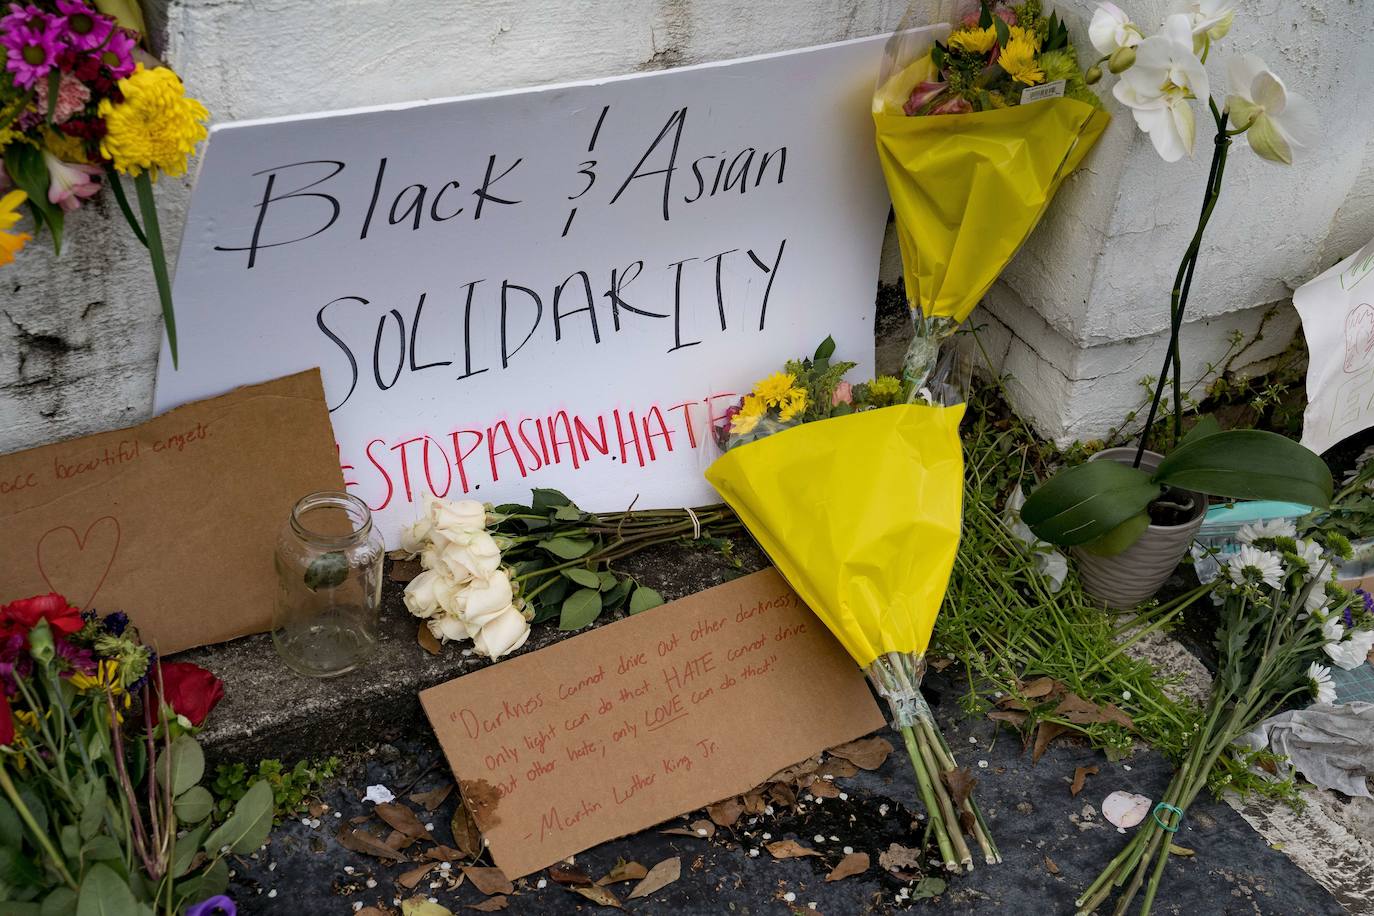 Black & Asian
SOLIDARITY
#STOP.ASIAN.HATE
beautiful angels.
"Darkness cannot drive out other darkness;
only light can do that. HATE cannot drive
out other hate; only LOVE can do that"
- Martin Luther King Jr.